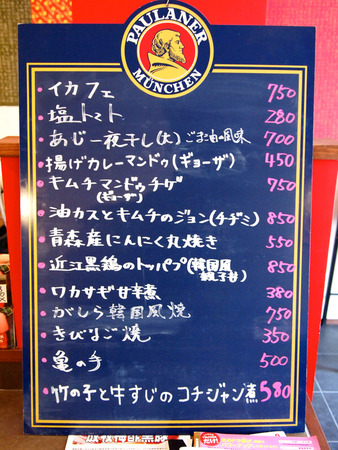 PAULANER
MÜNCHEN
・イカフェ 750
・塩トマト 280
・あじ一夜干し(大) ごま油の風味 700
・揚げカレーマンドゥ(ギョーザ) 450
・キムチマンドゥチゲ 750
(ギョーザ)
・油カスとキムチのジョン(チヂミ) 850
・青森産にんにく丸焼き 550
・近江黒鶏のトッパプ(韓国風親子丼) 850
・ワカサギ甘辛煮 380
・がしら韓国風焼 750
・きびなご焼 350
・亀の手 500
・竹の子と牛すじのコチジャン煮 580